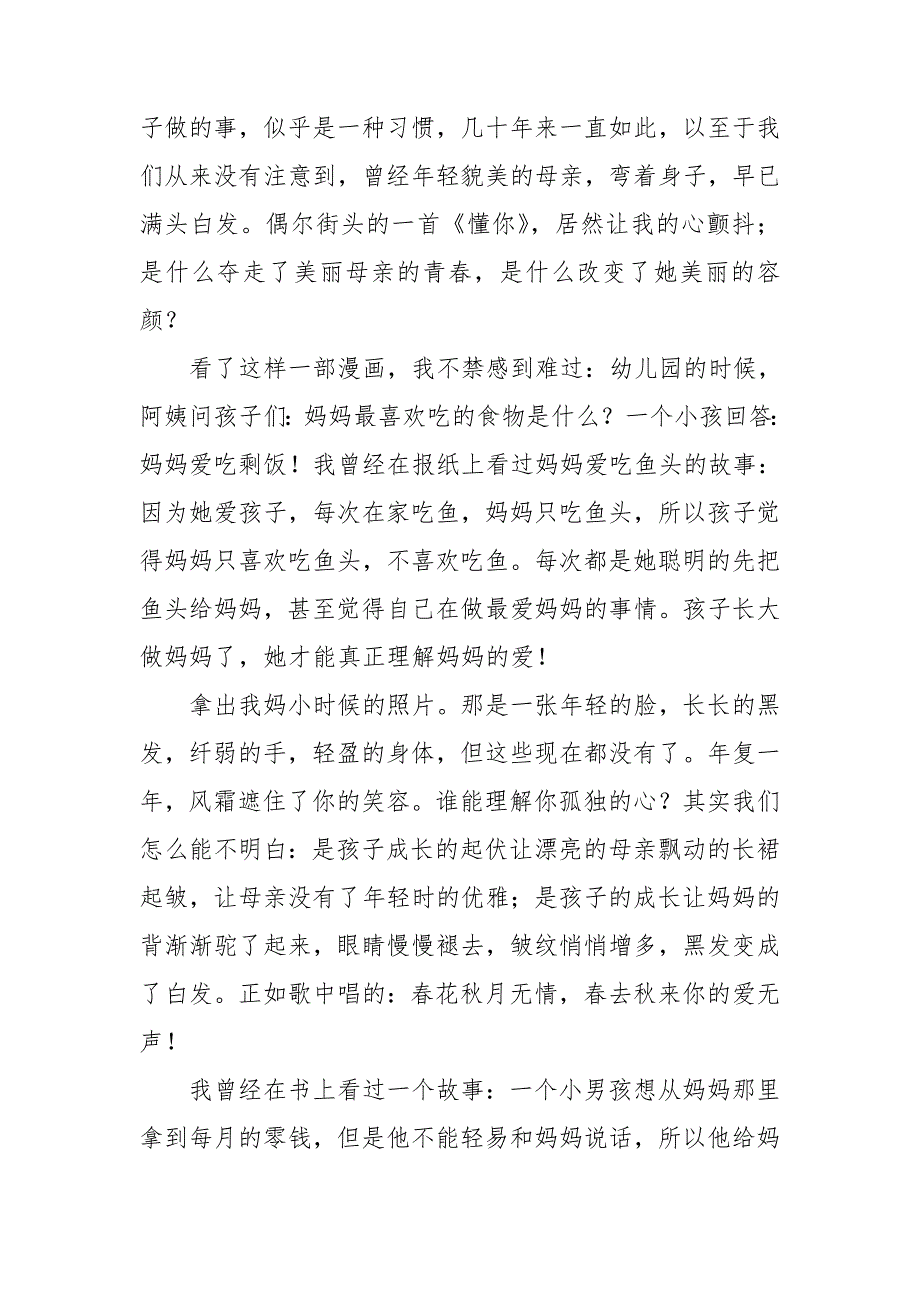 子做的事，似乎是一种习惯，几十年来一直如此，以至于我
们从来没有注意到，曾经年轻貌美的母亲，弯着身子，早已
满头白发。偶尔街头的一首《懂你》，居然让我的心颤抖；
是什么夺走了美丽母亲的青春，是什么改变了她美丽的容
颜？
看了这样一部漫画，我不禁感到难过：幼儿园的时候，
阿姨问孩子们：妈妈最喜欢吃的食物是什么？一个小孩回答：
妈妈爱吃剩饭！我曾经在报纸上看过妈妈爱吃鱼头的故事：
因为她爱孩子，每次在家吃鱼，妈妈只吃鱼头，所以孩子觉
得妈妈只喜欢吃鱼头，不喜欢吃鱼。每次都是她聪明的先把
鱼头给妈妈，甚至觉得自己在做最爱妈妈的事情。孩子长大
做妈妈了，她才能真正理解妈妈的爱！
拿出我妈小时候的照片。那是一张年轻的脸，长长的黑
发，纤弱的手，轻盈的身体，但这些现在都没有了。年复一
年，风霜遮住了你的笑容。谁能理解你孤独的心？其实我们
怎么能不明白：是孩子成长的起伏让漂亮的母亲飘动的长裙
起皱，让母亲没有了年轻时的优雅；是孩子的成长让妈妈的
背渐渐驼了起来，眼睛慢慢褪去，皱纹悄悄增多，黑发变成
了白发。正如歌中唱的：春花秋月无情，春去秋来你的爱无
声！
我曾经在书上看过一个故事：一个小男孩想从妈妈那里
拿到每月的零钱，但是他不能轻易和妈妈说话，所以他给妈